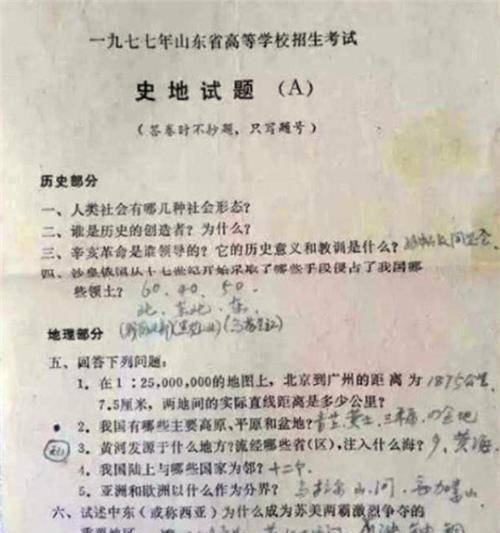 一九七七年山东省高等学校招生考试
史地试题（A）
（答卷时不抄题，只写题号）
历史部分
一、人类社会有哪几种社会形态？
二、谁是历史的创造者？为什么？
三、辛亥革命是谁领导的？它的历史意义和教训是什么？
四、沙皇俄国从十七世纪开始采取了哪些手段侵占了我国哪
些领土？ 60、40、50.
北、东北、东
地理部分
五、回答下列问题：
1．在1：25,000,000的地图上，北京到广州的距离为 1875公里
7.5厘米，两地间的实际直线距离是多少公里？
2．我国有哪些主要高原、平原和盆地？
3．黄河发源于什么地方？流经哪些省（区），注入什么海？9、黄海
4．我国陆上与哪些国家为邻？十二个
5．亚洲和欧洲以什么作为分界？乌拉尔山、河
六、试述中东（或称西亚）为什么成为苏美两霸激烈争夺的
重要地区